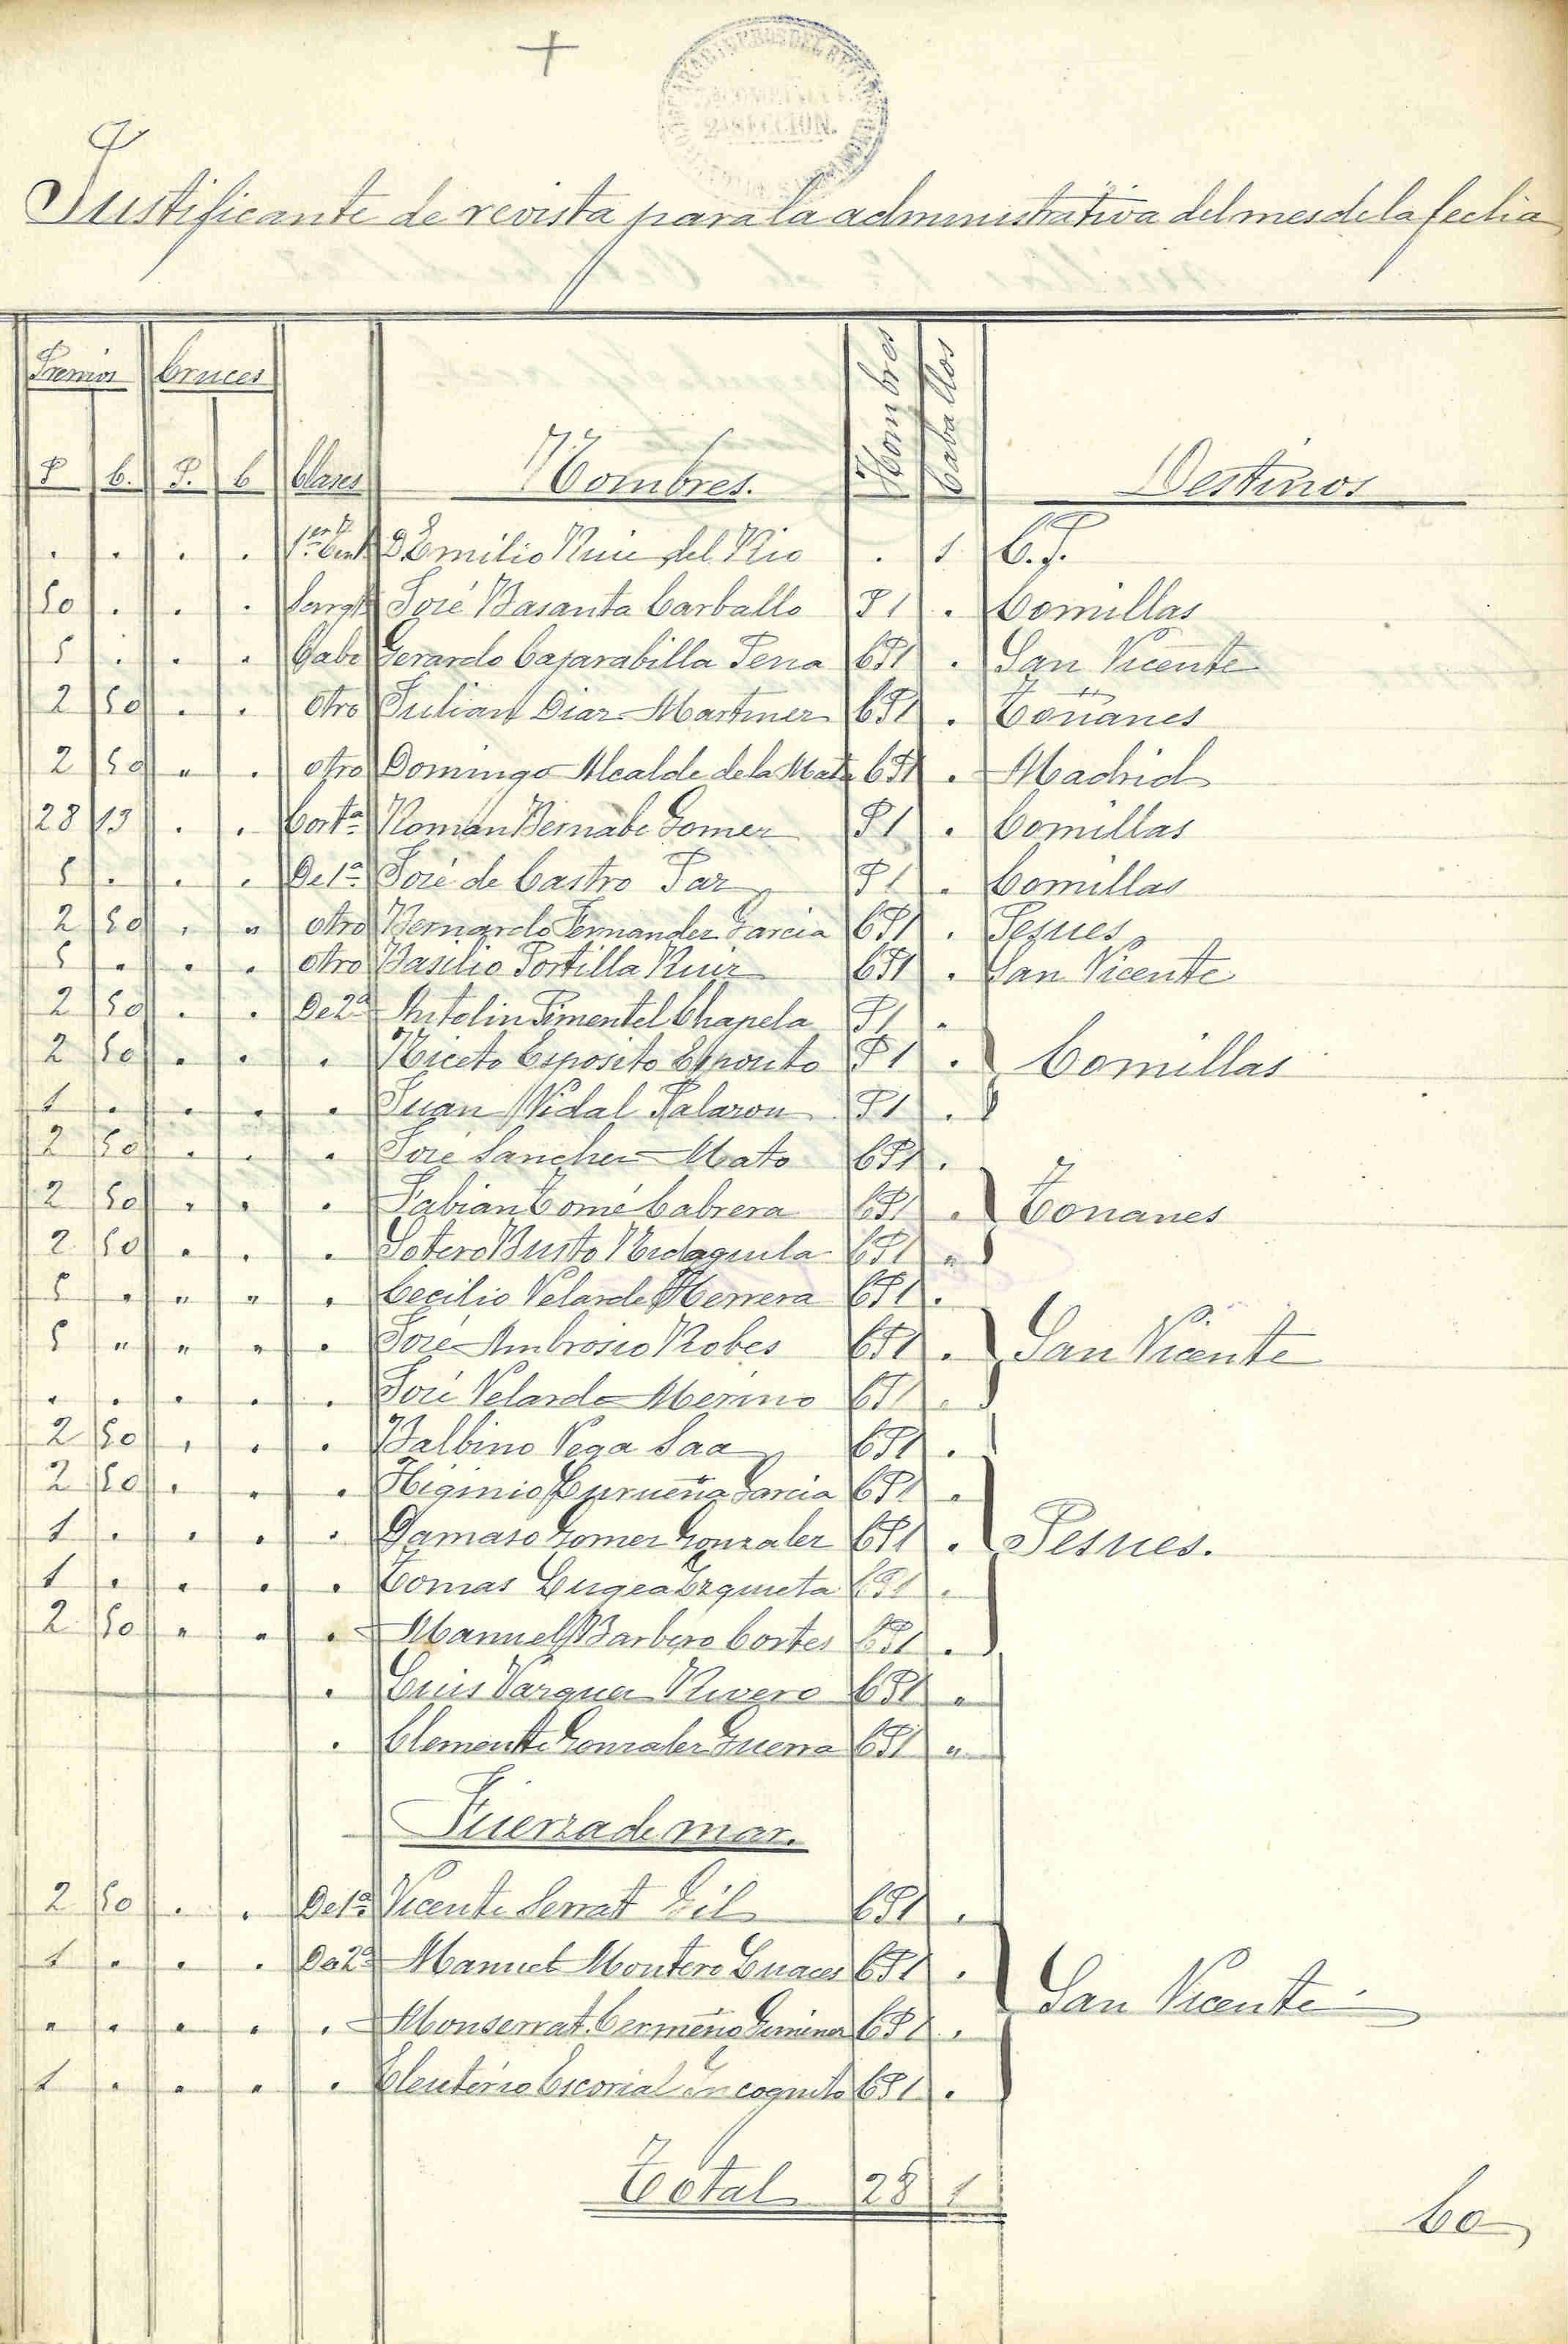 2ª SECCION.
Justificante de revista para la administrativa del mes de la fecha
Premios Cruces
P C. P. C Clases Nombres. Hombres Caballos Destinos
. . . . 1er Tent D Emilio Ruiz del Rio . 1 C. P.
50 . . . Sargto José Basanta Carballo P 1 . Comillas
5 . . . Cabo Gerardo Cajarabilla Pena CP1 . San Vicente
2 50 . . otro Julian Diaz Martinez CP1 . Toñanes
2 50 " . otro Domingo Alcalde de la Mata CP1 . Madrid
28 13 . . Corta Roman Bernabe Gomez P1 . Comillas
5 . . . De 1ª José de Castro Paz P1 . Comillas
2 50 . " otro Bernardo Fernandez Garcia CP1 . Pesues
5 . . . otro Basilio Portilla Ruiz CP1 . San Vicente
2 50 . . De 2ª Antolin Pimentel Chapela P1 .
2 50 . . . Niceto Esposito Esposito P1 . Comillas
1 . . . . Juan Vidal Palazon P1 .
2 50 . . . José Sanchez Mato CP1 .
2 50 . . . Fabian Tomé Cabrera CP1 . Tonanes
2 50 . . . Sotero Busto CP1 "
5 . " " . Cecilio Velarde Herrera CP1 .
5 " " " . José Ambrosio Robes CP1 . San Vicente
. . . . . José Velarde Merino CP1 .
2 50 . . . Balbino Vega Saa CP1 .
2 50 . . . Higinio Curueña Garcia CP1 "
1 . . . . Damaso Gomez Gonzalez CP1 . Pesues.
1 . . . . Tomas Lugea Ezquieta CP1 .
2 50 " " . Manuel Barbero Cortes CP1 .
. Luis Vazquez Rivero CP1 "
. Clemente Gonzalez Guerra CP1 "
Fuerza de mar.
2 50 . . De 1ª Vicente Serrat Gil CP1 .
1 " . . De 2ª Manuel Montero Luaces CP1 .
San Vicente
" . . . . Monserrat Cermeño Gimenez CP1 .
1 . . " . Eleuterio Escorial Incognito CP1 .
Total 28 1
Co